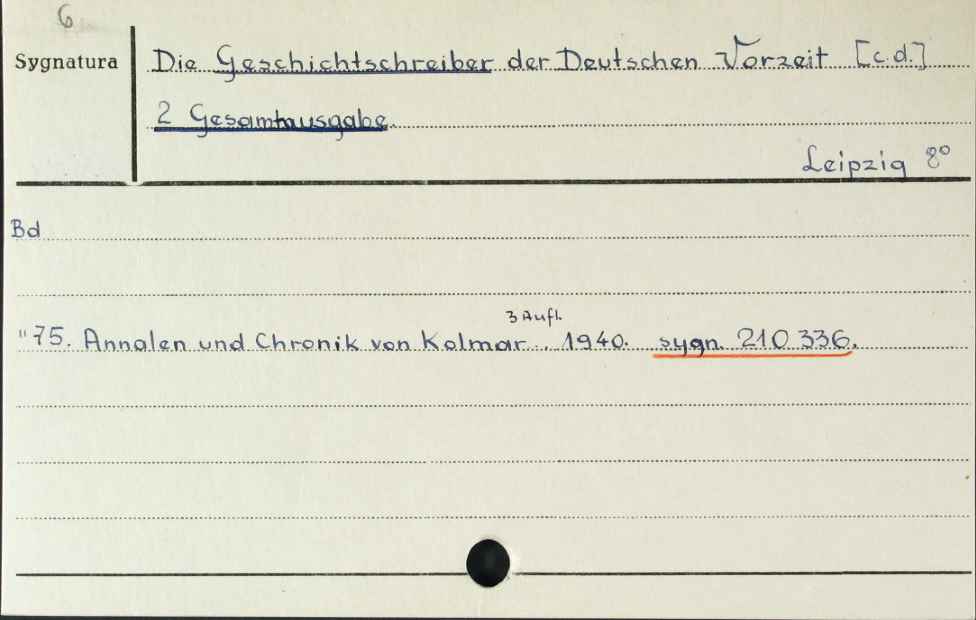 6
Sygnatura Die Geschichtschreiber der Deutschen Vorzeit [c.d.]
2 Gesamtausgabe.
Leipzig 8°
Bd
3 Aufl.
"75. Annalen und Chronik von Kolmar. . 1940. sygn. 210 336.